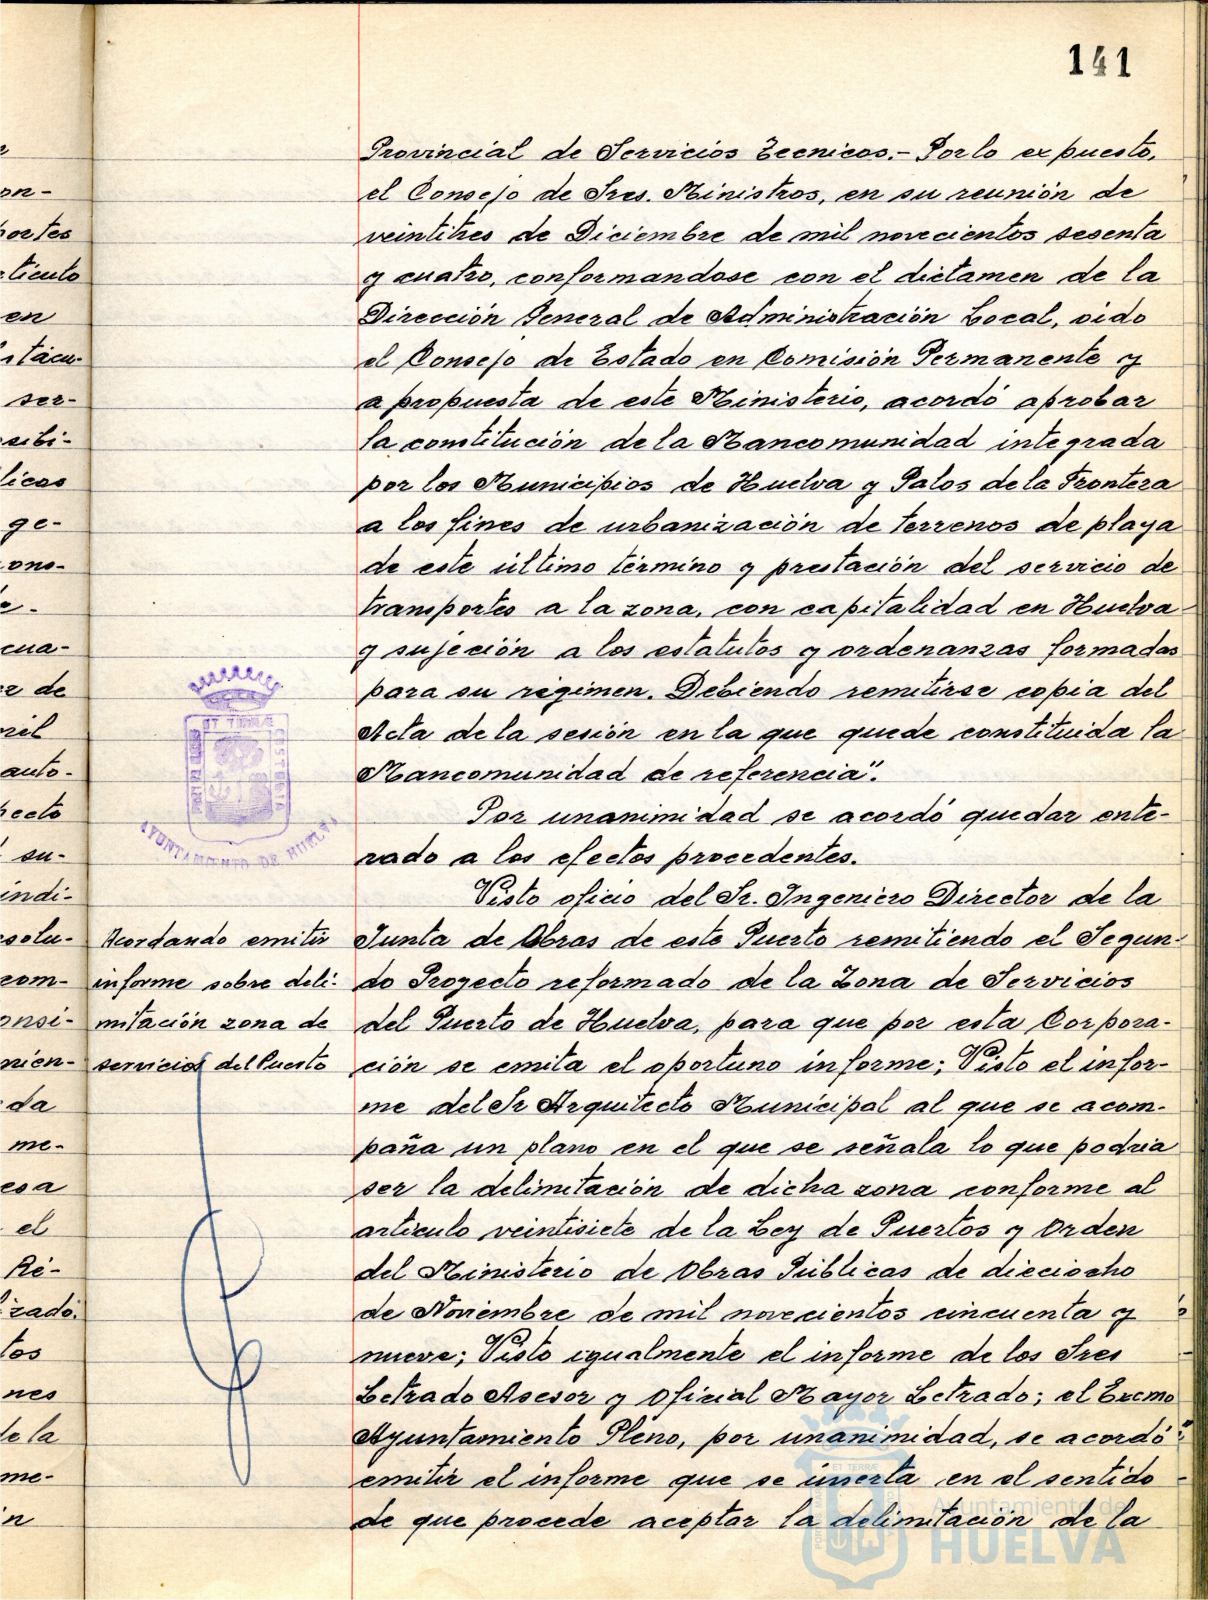 141
Provincial de Servicios Tecnicos.- Por lo expuesto,
el Consejo de Sres. Ministros, en su reunión de
veintitres de Diciembre de mil novecientos sesenta
y cuatro, conformandose con el dictamen de la
Dirección General de Administración Local, oido
el Consejo de Estado en Comisión Permanente y
a propuesta de este Ministerio, acordó aprobar
la constitución de la Mancomunidad integrada
por los Municipios de Huelva y Palos de la Frontera
a los fines de urbanización de terrenos de playa
de este último término y prestación del servicio de
transportes a la zona, con capitalidad en Huelva
y sujeción a los estatutos y ordenanzas formadas
para su régimen. Debiendo remitirse copia del
Acta de la sesión en la que quede constituida la
Mancomunidad de referencia".
Por unanimidad se acordó quedar ente-
rado a los efectos procedentes.
Visto oficio del Sr. Ingeniero Director de la
Junta de Obras de este Puerto remitiendo el Segun-
do Proyecto reformado de la Zona de Servicios
del Puerto de Huelva, para que por esta Corpora-
ción se emita el oportuno informe; Visto el infor-
me del Sr Arquitecto Municipal al que se acom-
paña un plano en el que se señala lo que podria
ser la delimitación de dicha zona conforme al
artículo veintisiete de la Ley de Puertos y Orden
del Ministerio de Obras Públicas de dieciocho
de Noviembre de mil novecientos cincuenta y
nueve; Visto igualmente el informe de los Sres
Letrado Asesor y Oficial Mayor Letrado; el Excmo
Ayuntamiento Pleno, por unanimidad, se acordó
emitir el informe que se inserta en el sentido
de que procede aceptar la delimitación de la
Acordando emitir
informe sobre deli-
mitación zona de
servicios del Puerto
PORTUS MARIS
ET TERRÆ
CUSTODIA
AYUNTAMIENTO DE HUELVA
on-
portes
en
ser-
sibi-
licas
ge-
cua-
ez de
mil
auto-
pecto
su-
indi-
esolu-
com-
onsi-
mien-
da
me-
esa
el
Ré-
izado.
tos
nes
de la
me-
in
Ayuntamiento de
HUELVA